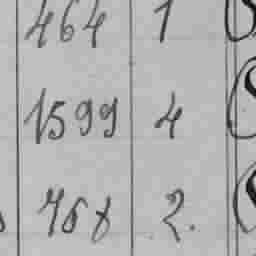 464 1
1599 4
768 2.